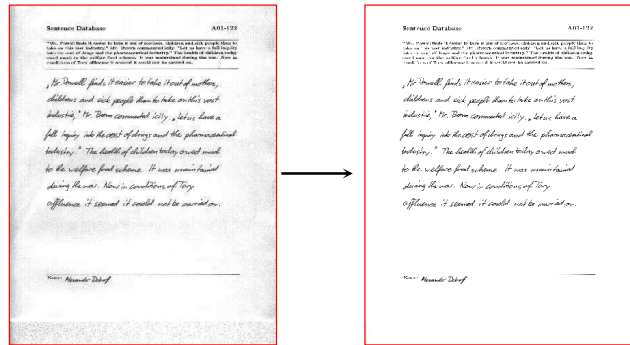 Sentence Database A01-122
"Mr. Powell finds it easier to take it out of mothers, children and sick people than to
take on this vast industry," Mr. Brown commented icily. "Let us have a full inquiry
into the cost of drugs and the pharmaceutical industry." The health of children today
owed much to the welfare food scheme. It was maintained during the war. Now in
conditions of Tory affluence it seemed it could not be carried on.
„Mr. Powell finds it easier to take it out of mothers,
childrens and sick people than to take on this vast
industrie," Mr. Brown commented icily. „Let us have a
full inquiry into the cost of drugs and the pharmaceutical
industry." The health of children today owed much
to the welfare food scheme. It was maintained
during the war. Now in conditions of Tory
affluence it seemed it could not be carried on.
Name: Alexander
Sentence Database A01-122
"Mr. Powell finds it easier to take it out of mothers, children and sick people than to
take on this vast industry," Mr. Brown commented icily. "Let us have a full inquiry
into the cost of drugs and the pharmaceutical industry." The health of children today
owed much to the welfare food scheme. It was maintained during the war. Now in
conditions of Tory affluence it seemed it could not be carried on.
„Mr. Powell finds it easier to take it out of mothers,
childrens and sick people than to take on this vast
industrie," Mr. Brown commented icily. „Let us have a
full inquiry into the cost of drugs and the pharmaceutical
industry." The health of children today owed much
to the welfare food scheme. It was maintained
during the war. Now in conditions of Tory
affluence it seemed it could not be carried on.
Name: Alexander